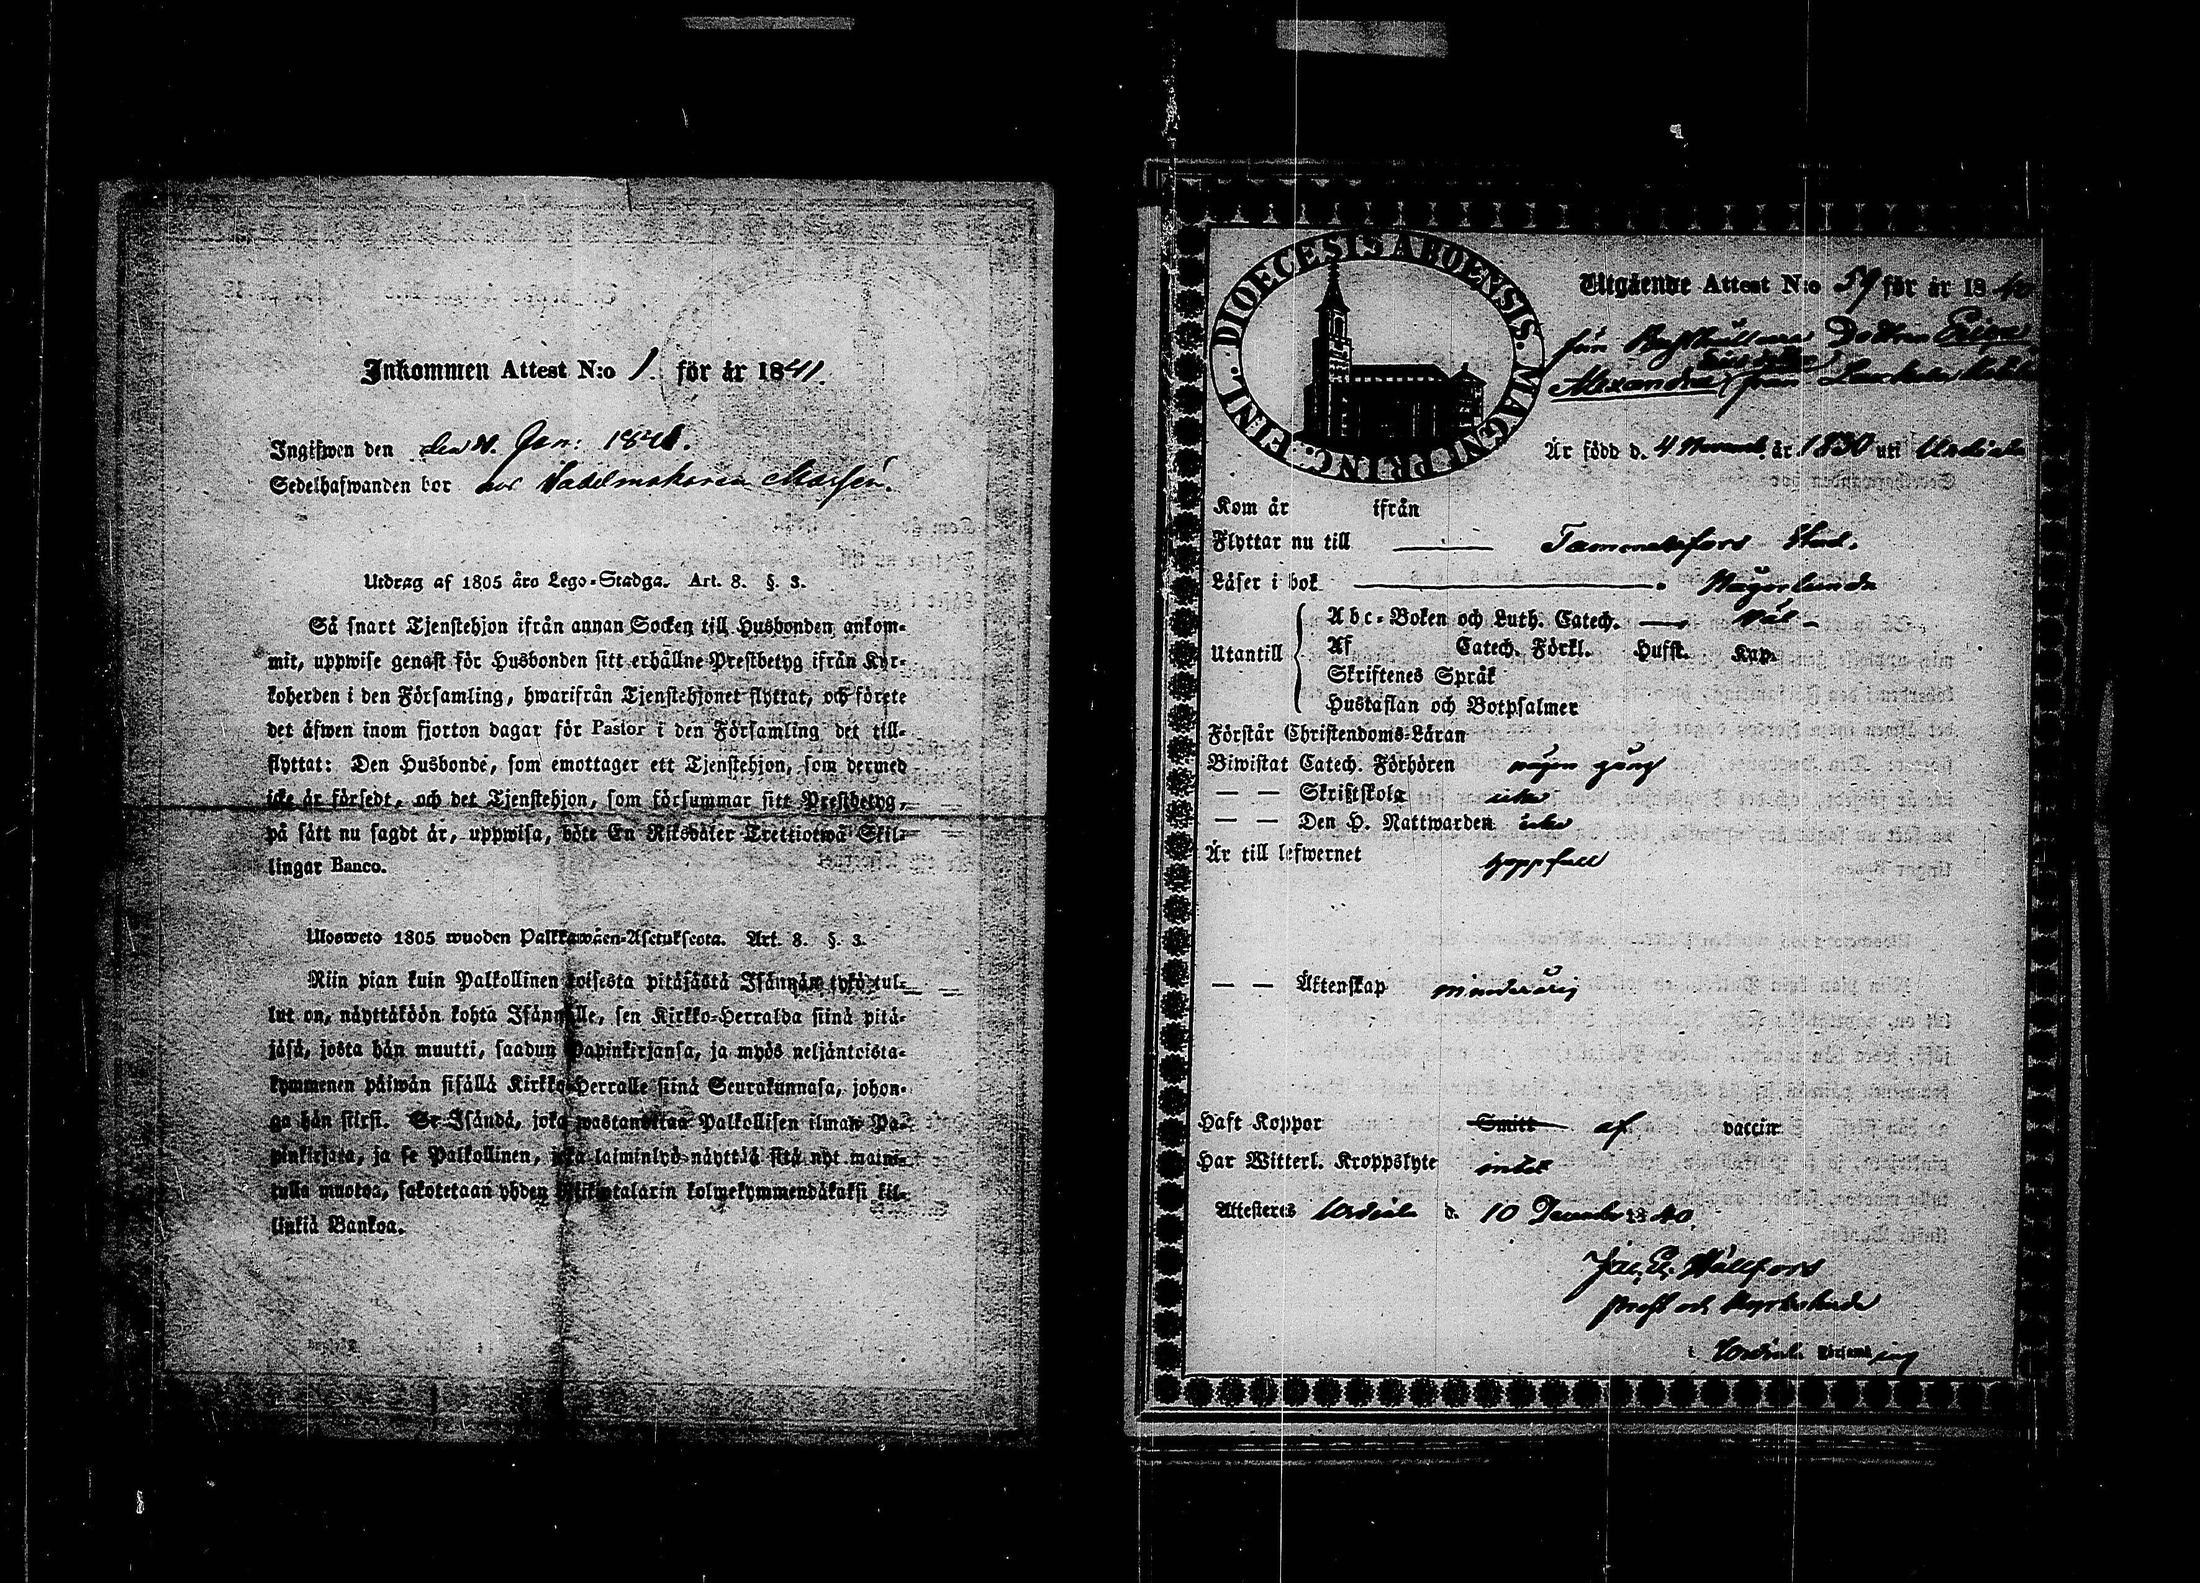 Inkommen Attest N:o 1. för år 1841.
Ingifwen den den Jan: 1841.
Sedelhafwanden bor hos Sadelmakaren
Utdrag af 1805 års Lego-Stadga. Art. 8. §. 3.
Så snart Tjenstehjon ifrån annan Socken till Husbonden ankom-
mit, uppwise genast för Husbonden sitt erhållne Prestbetyg ifrån Kyr-
koherden i den Församling, hwarifrån Tjenstehjonet flyttat, och förete
det äfwen inom fjorton dagar för Pastor i den Församling det till-
flyttat: Den Husbonde, som emottager ett Tjenstehjon, som dermed
icke är försedt, och det Tjenstehjon, som försummar sitt Prestbetyg,
på sätt nu sagdt är, uppwisa, böte En Riksdaler Trettiotwå Skil-
lingar Banco.
Ulosweto 1805 wuoden Palkkawäen-Asetuksesta. Art. 8. §. 3.
Niin pian kuin Palkollinen toisesta pitäjästä Isännän tykö tul-
lut on, näyttäköön kohta Isännälle, sen Kirkko-Herralda siinä pitä-
jäsä, josta hän muutti, saadun Papinkirjansa, ja myös neljäntoista-
kymmenen päiwän sisällä Kirkko-Herralle siinä Seurakunnasa, johon-
ga hän siirsi. Se Isändä, joka wastanottaa Palkollisen ilman Pa-
pinkirjata, ja se Palkollinen, joka laiminlyö näyttää sitä nyt maini-
tulla muotoa, sakotetaan yhden Riksintalarin kolmekymmendäkaksi kil-
linkiä Bankoa.
DIOECESIS ABOENSIS. MAGNI PRINC. FINL.
Utgående Attest N:o 59 för år 1840
för Dottren
Alexandra från
Är född d. 4 år 1830 uti Urdiala
Kom år ifrån
Flyttar nu till Tammerfors Stad.
Läser i bok Någorlunda
Utantill
Abc-Boken och Luth. Catech. Väl
Af Catech. Förkl. Hufst. Kap.
Skriftenes Språk
Hustaflan och Botpsalmer
Förstår Christendoms-Läran
Biwistat Catech. Förhören någon gång
— — Skriftskola icke
— — Den H. Nattwarden icke
Är till lefwernet
— — Äktenskap minderårig
Haft Koppor Smitt af vaccin
Har Witterl. Kroppslyte intet
Attesteras Urdiala d. 10 December 1840.
prost och Kyrkoherde
i Urdiala församling